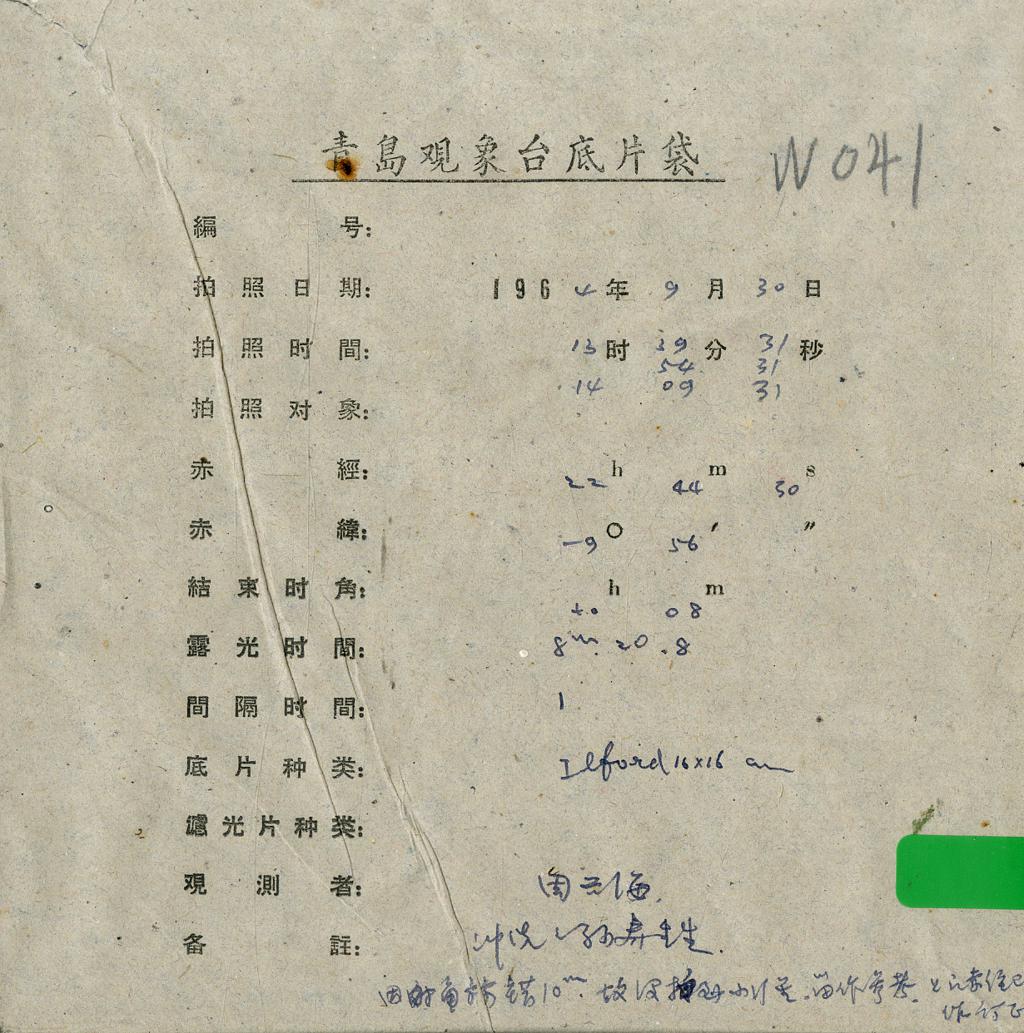 青島观象台底片袋
W041
編 号:
拍照日期: 1964年9月30日
拍照时間: 13时39分31秒
54 31
14 09 31
拍照对象:
赤 經: 22h 44m 30s
赤 緯: -9° 56′ ″
結束时角: +0h 08m
露光时間: 8m. 20. 8
間隔时間: 1
底片种类: Ilford 16×16 cm
濾光片种类:
观測者: 周
备 註: 冲洗 孙寿
因时角 错10m. 故没拍 小行星. 留作参考.
作订正